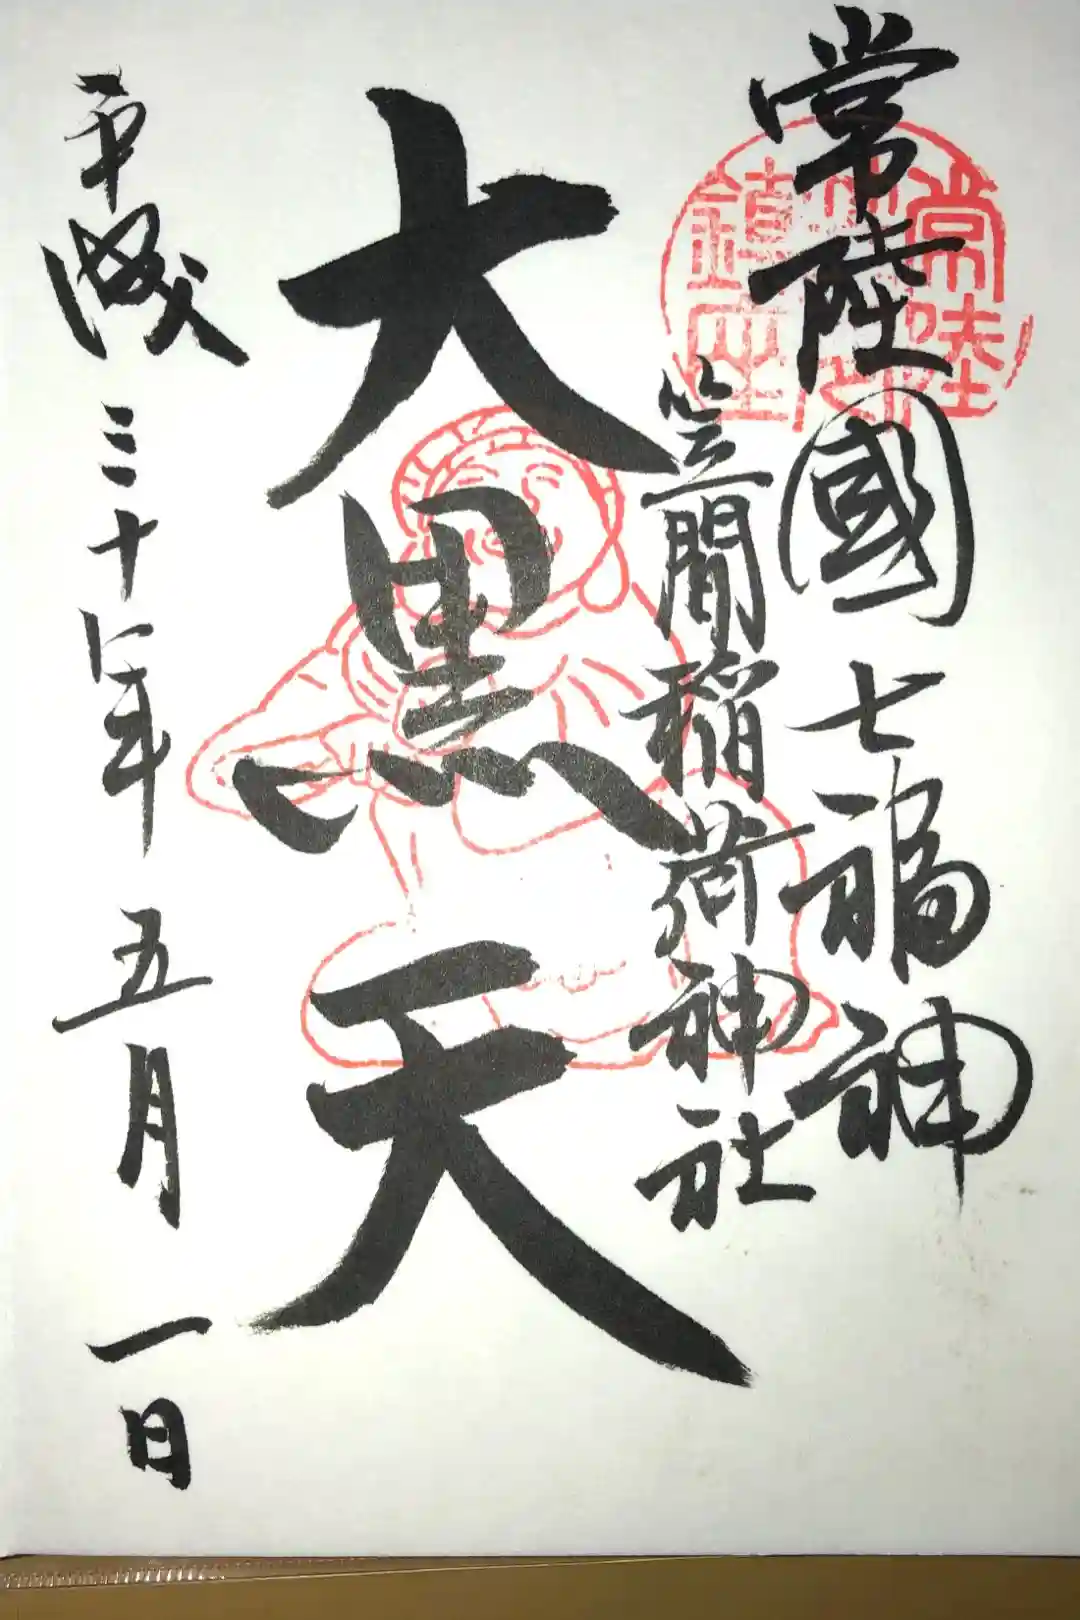 常陸國 七福神
笠間稲荷神社
大黒天
平成三十年 五月 一日
常陸
鎮座